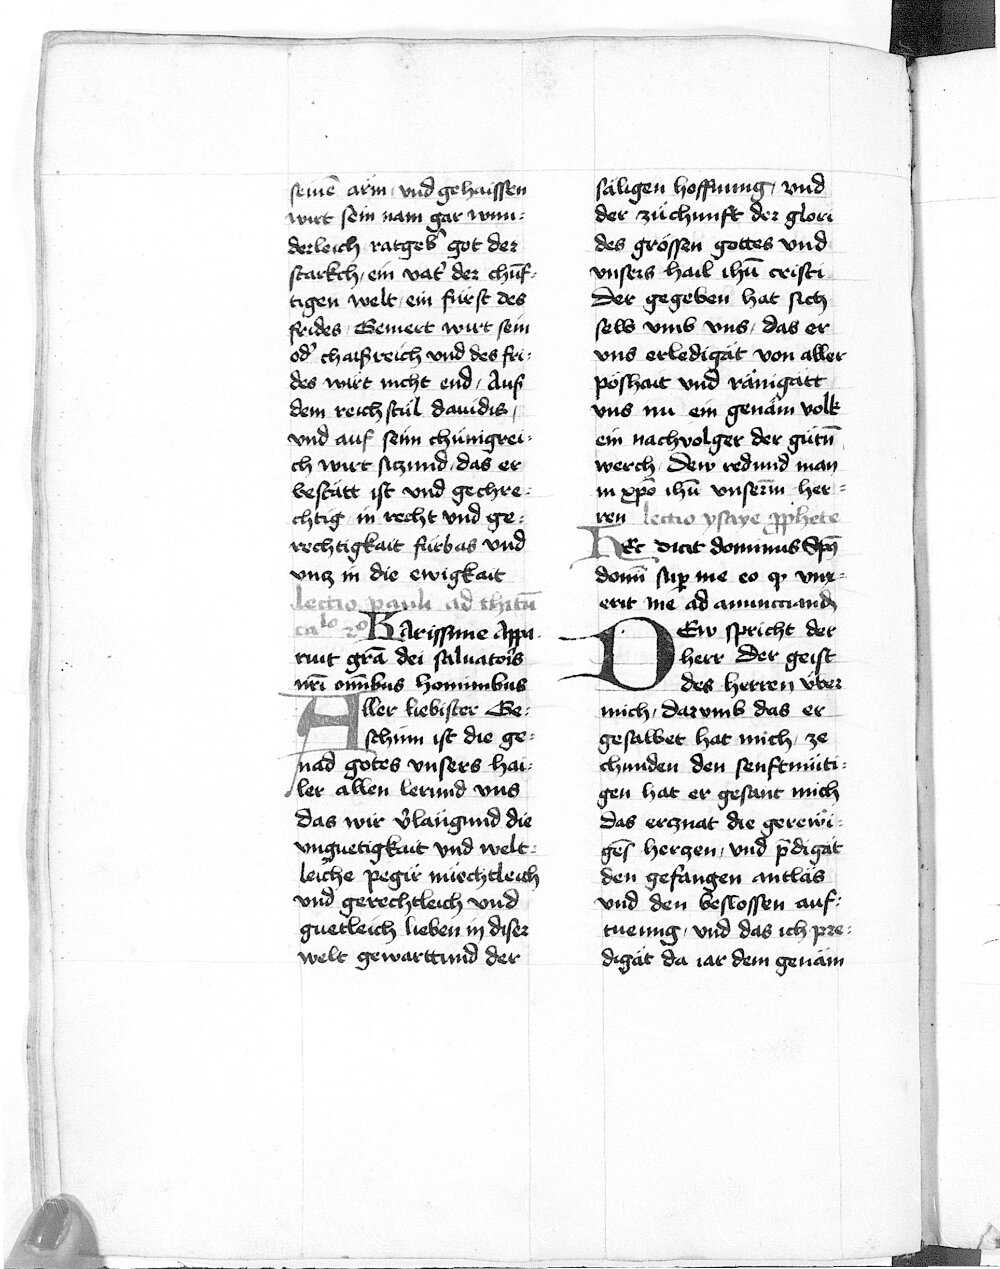 seinē arm, vnd gehaissen
wirt sein nam gar wun-
derleich ratgeb᾽ got der
starkch, ein vat᾽ der chūf-
tigen welt, ein fürst des
frides, Gemert wirt sein
od᾽ chaisreich vnd des fri-
des wirt nicht end, Auf
dem reichstůl dauidis,
vnd auf seim chünigrei-
ch wirt siczund, das er
bestätt ist vnd gechre-
chtig in recht vnd ge-
rechtigkait fürbas vnd
vncz in die ewigkait
lectio pauli ad thitū
caᵖˡᵒ 2º Karissime Appa-
ruit grā dei saluatoris
nrī omībus hominibus
Aller liebister Ge-
schinn ist die ge-
nad gotes vnsers hai-
ler allen lerund vns
das wir v᾽laugund die
vnguetigkait vnd welt-
leiche pegir nüechtleich
vnd gerechtleich vnd
guetleich lieben in diser
welt gewarttund der
säligen hoffnung, vnd
der züchunft der glori
des grössen gottes vnd
vnsers hail ihū cristi
Der gegeben hat sich
selb vmb vns, das er
vns erledigät von aller
poshait vnd rainigätt
vns nu ein genäm volk
ein nachvolger der gůtn̄
werch, Dew red vnd man
in xp̄o ihū vnserm̄ her-
ren lectio ysaye p̄phete
Hec dicit dominus Spū
domī sup me eo qp vnx-
erit me ad anunciand
Dew spricht der
herr Der geist
des herren vber
mich, dar vmb das er
gesalbet hat mich, ze
chunden den senftmüti-
gen hat er gesant mich
das ercznat die gerewi-
gēs herczen, vnd p̄digät
den gefangen antläs
vnd den beslossen auf-
tueung, vnd das ich pre-
digät da iar dem genäm